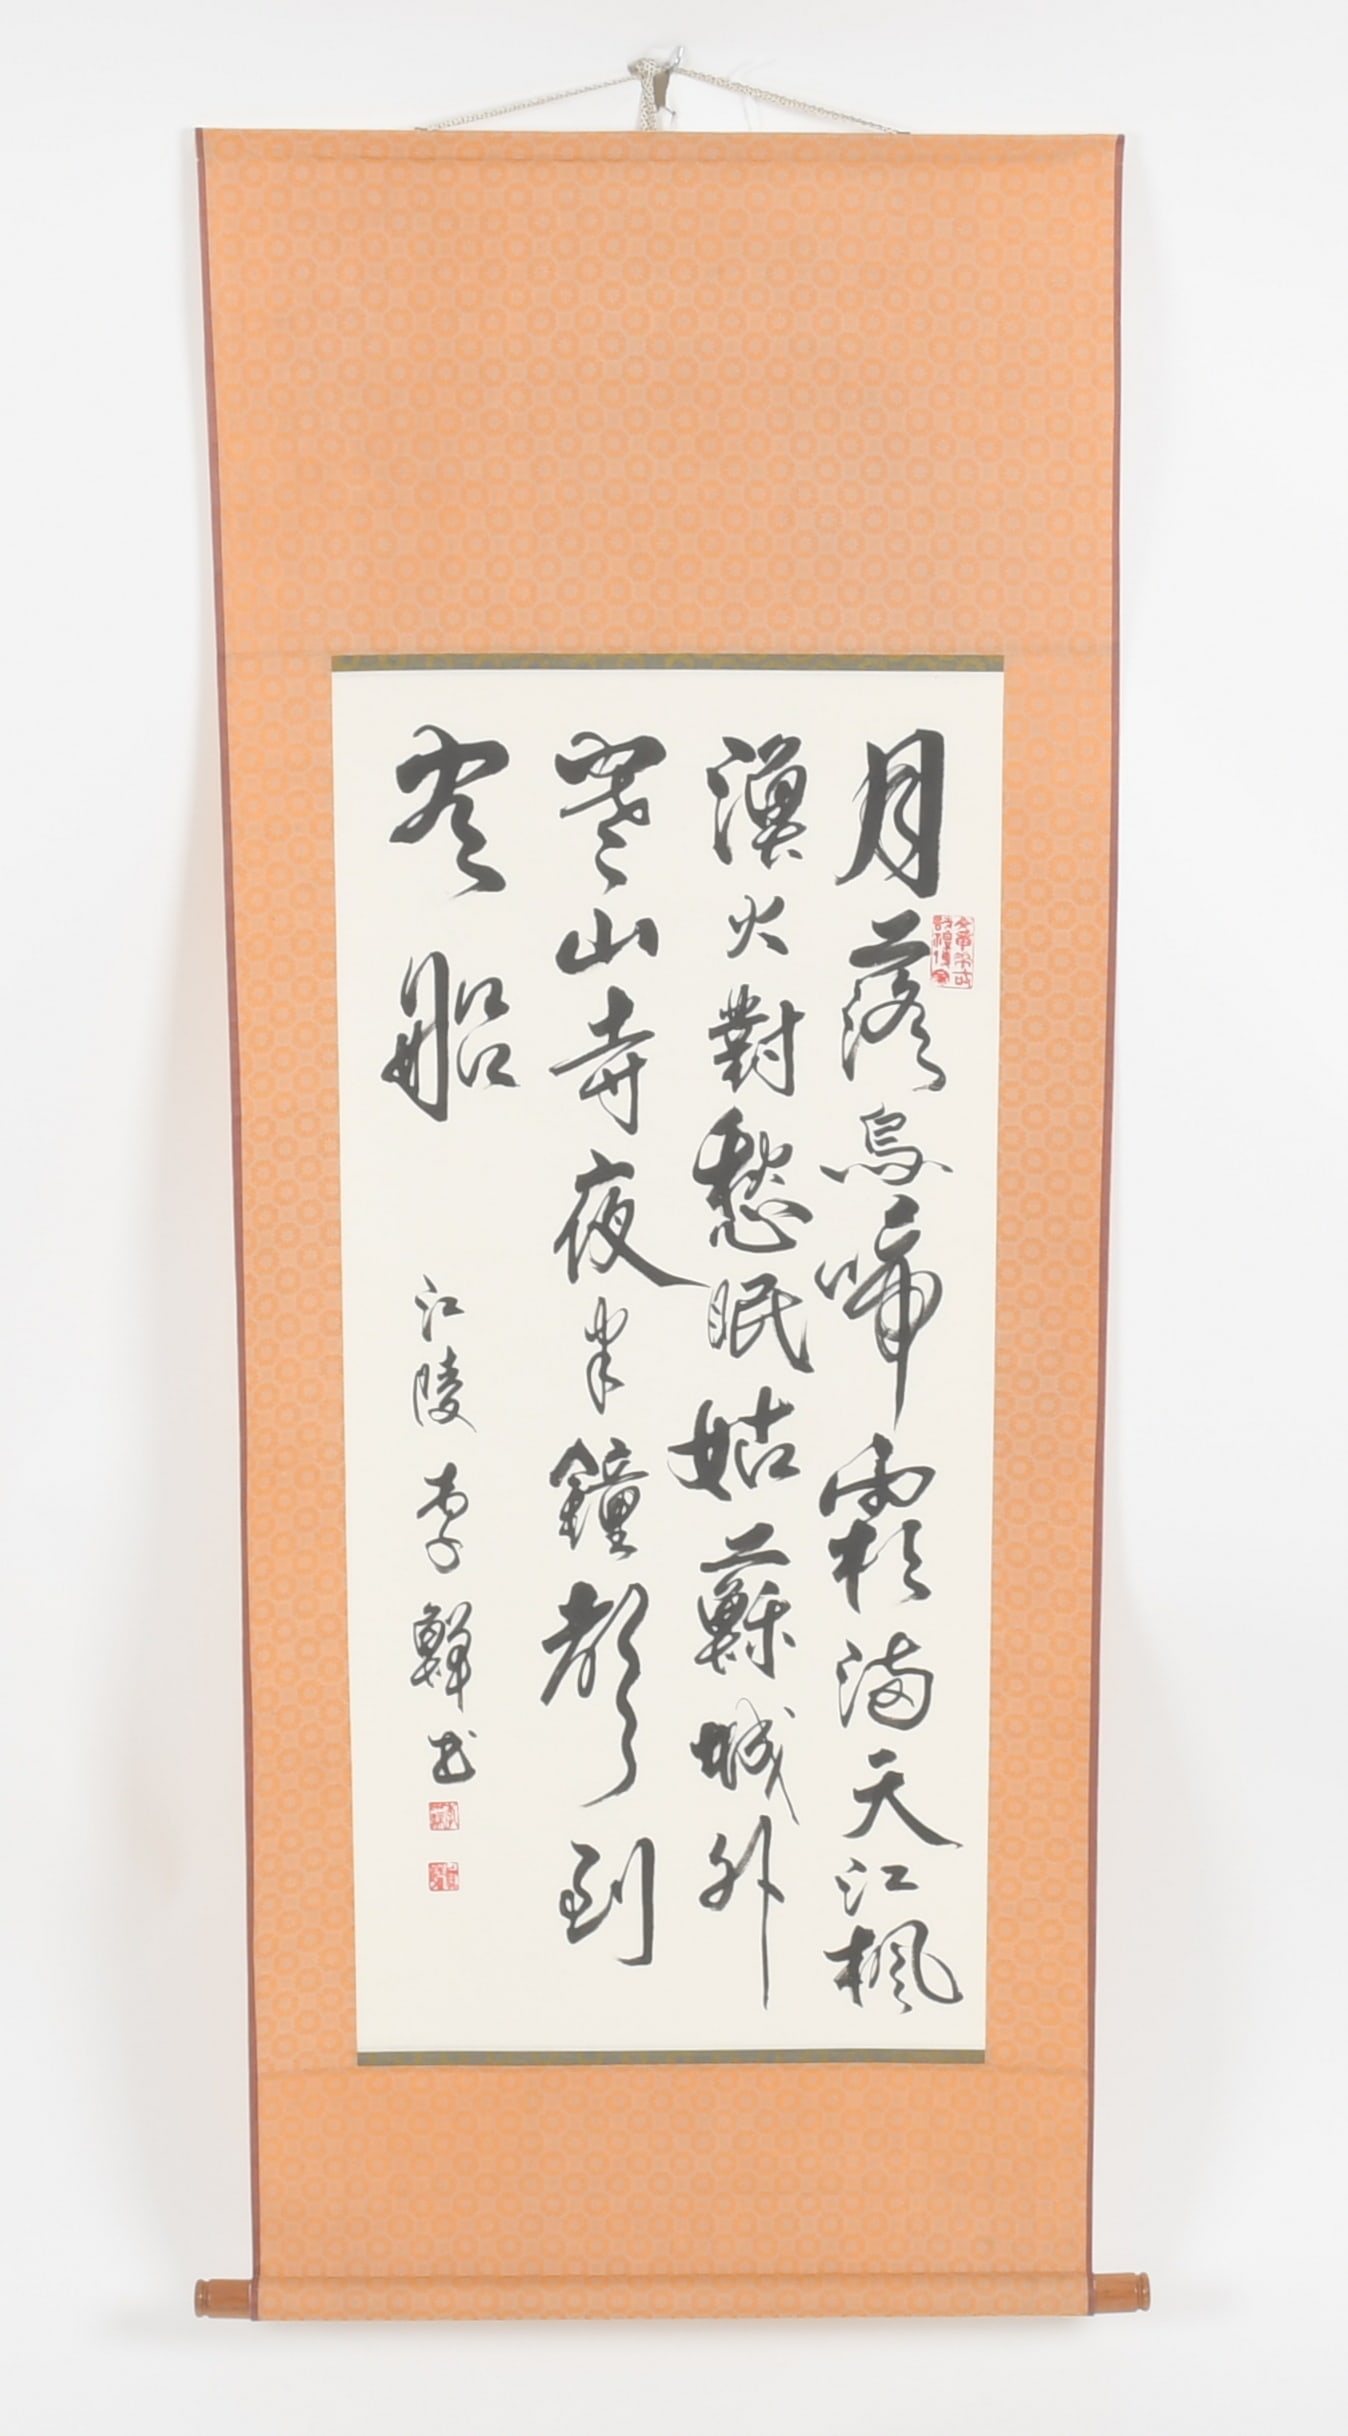 月落烏啼霜滿天江楓
漁火對愁眠姑蘇城外
寒山寺夜半鐘聲到
客船
江陵李鮮書